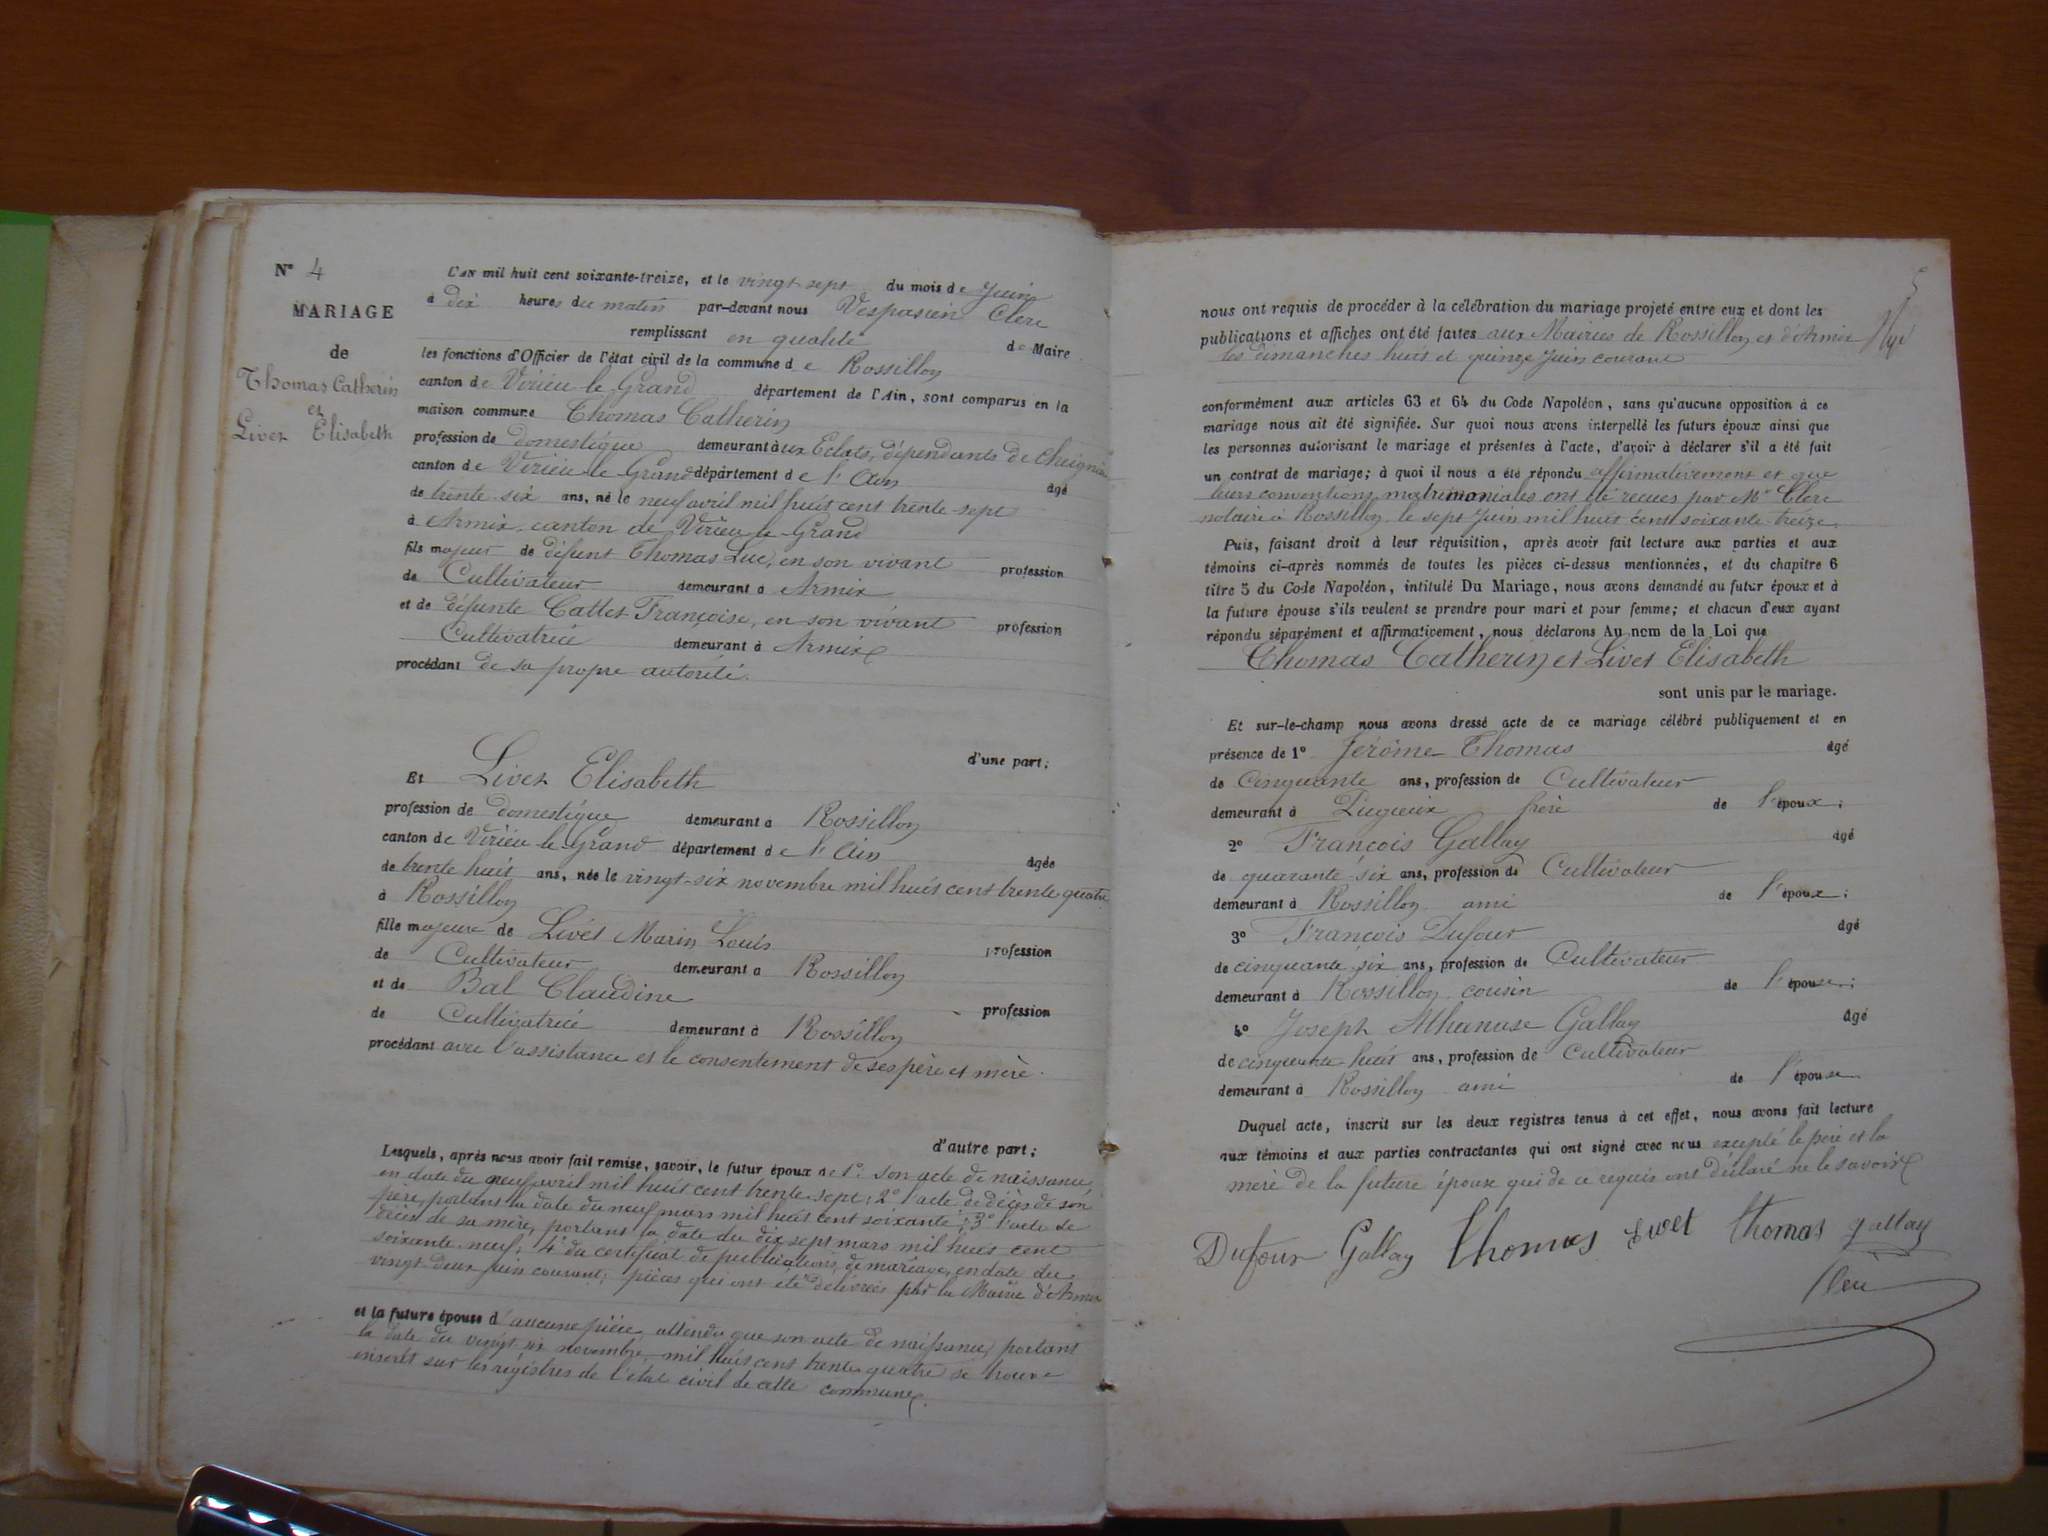 N° 4
MARIAGE
de
Thomas Catherin
et
Livet Elisabeth
L'AN mil huit cent soixante-treize, et le vingt-sept du mois de Juin
à dix heures du matin par-devant nous Vespasien Clerc
remplissant en qualité de Maire
les fonctions d'Officier de l'état civil de la commune de Rossillon
canton de Virieu-le-Grand département de l'Ain, sont comparus en la
maison commune Thomas Catherin
profession de domestique demeurant à ux Eclats, dépendants de Cheignieu
canton de Virieu-le-Grand département de l'Ain âgé
de trente-six ans, né le neuf avril mil huit cent trente-sept
à Armix, canton de Virieu-le-Grand
fils majeur de défunt Thomas Luc, en son vivant profession
de Cultivateur demeurant à Armix
et de défunte Cattet Françoise, en son vivant profession
Cultivatrice demeurant à Armix
procédant de sa propre autorité.
d'une part;
Et Livet Elisabeth
profession de domestique demeurant à Rossillon
canton de Virieu-le-Grand département de l'Ain âgée
de trente huit ans, née le vingt-six novembre mil huit cent trente-quatre
à Rossillon
fille majeure de Livet Marin Louis profession
de Cultivateur demeurant à Rossillon
et de Bal Claudine profession
de Cultivatrice demeurant à Rossillon
procédant avec l'assistance et le consentement de ses père et mère.
d'autre part;
Lesquels, après nous avoir fait remise, savoir, le futur époux de 1° son acte de naissance
en date du neuf avril mil huit cent trente-sept; 2° l'acte de décès de son
père, portant la date du neuf mars mil huit cent soixante; 3° l'acte de
décès de sa mère, portant la date du dix sept mars mil huit cent
soixante-neuf; 4° du certificat de publications de mariage, en date du
vingt-deux juin courant; pièces qui ont été délivrées par la Mairie d'Armix
et la future épouse d'aucune pièce, attendu que son acte de naissance, portant
la date du vingt six novembre mil huit cent trente-quatre se trouve
inscrit sur les régistres de l'état civil de cette commune.
5
nous ont requis de procéder à la célébration du mariage projeté entre eux et dont les
publications et affiches ont été faites aux Mairies de Rossillon et d'Armix
les dimanches huit et quinze Juin courant
conformément aux articles 63 et 64 du Code Napoléon, sans qu'aucune opposition à ce
mariage nous ait été signifiée. Sur quoi nous avons interpellé les futurs époux ainsi que
les personnes autorisant le mariage et présentes à l'acte, d'avoir à déclarer s'il a été fait
un contrat de mariage; à quoi il nous a été répondu affirmativement et que
leurs conventions matrimoniales ont été recues par Me Clerc
notaire à Rossillon le sept Juin mil huit cent soixante-treize.
Puis, faisant droit à leur réquisition, après avoir fait lecture aux parties et aux
témoins ci-après nommés de toutes les pièces ci-dessus mentionnées, et du chapitre 6
titre 5 du Code Napoléon, intitulé Du Mariage, nous avons demandé au futur époux et à
la future épouse s'ils veulent se prendre pour mari et pour femme; et chacun d'eux ayant
répondu séparément et affirmativement, nous déclarons Au nom de la Loi que
Thomas Catherin et Livet Elisabeth
sont unis par le mariage.
Et sur-le-champ nous avons dressé acte de ce mariage célébré publiquement et en
présence de 1° Jérôme Thomas âgé
de Cinquante ans, profession de Cultivateur
demeurant à Pugieux frère de l'époux;
2° François Gallay âgé
de quarante-six ans, profession de Cultivateur
demeurant à Rossillon ami de l'époux;
3° François Dufour âgé
de cinquante six ans, profession de Cultivateur
demeurant à Rossillon cousin de l'épouse;
4° Joseph Athanase Gallay âgé
de cinquante-huit ans, profession de Cultivateur
demeurant à Rossillon ami de l'épouse
Duquel acte, inscrit sur les deux registres tenus à cet effet, nous avons fait lecture
aux témoins et aux parties contractantes qui ont signé avec nous excepté le père et la
mère de la future épouse qui de ce requis ont déclaré ne le savoir
Dufour Gallay Thomas Livet Thomas gallay
Clerc